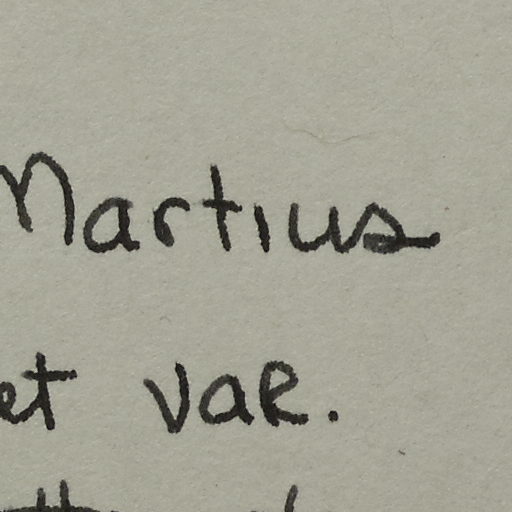 Martius
et var.